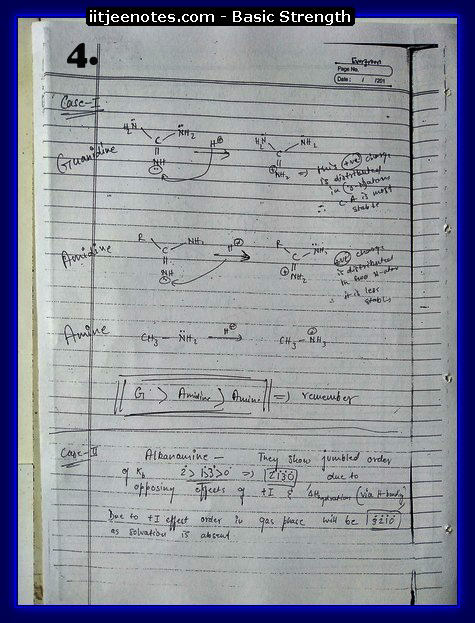 iitjeenotes.com - Basic Strength
4.
Evergreen
Page No.
Date: / /201
Case-I
H₂N̈ N̈H₂ H₂N̈ N̈H₂
C H⊕ C
Guanidine
NH ⊕NH₂ => this +ve charge
is distributed
in (3-N) atoms
∴ C A is most
stable
R NH₂ R N̈H₂
Amidine C H⊕ C
NH ⊕NH₂
+ve charge
is distributed
in two N-atom
∴ it is less
stable
Amine
CH₃ - N̈H₂ H⊕ CH₃ - NH₃
G > Amidine > Amine => remember
Case-II Alkanamine - They show jumbled order
of Kb 2° > 1° 3° > 0° => 2°1°3°0° due to
opposing effects of +I & ΔHhydration (via H-bondg)
Due to +I effect order in gas phase will be 3°2°1°0°
as solvation is absent